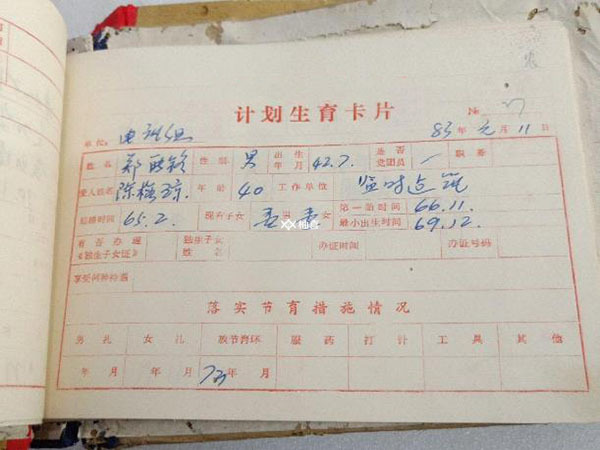 计划生育卡片
№ 27
单位: 83年元月11日
姓名 郑 性别 男 出生年月 42.7. 是否党团员 / 职务
爱人姓名 陈梅琼 年龄 40 工作单位
结婚时间 65.2. 现有子女 男 女 第一胎时间 66.11. 最小出生时间 69.12.
有否办理《独生子女证》 独生子女姓名 办证时间 办证号码
享受何种待遇
落实节育措施情况
男扎 女扎 放节育环 服药 打计 工具 其他
年月 年月 73年月